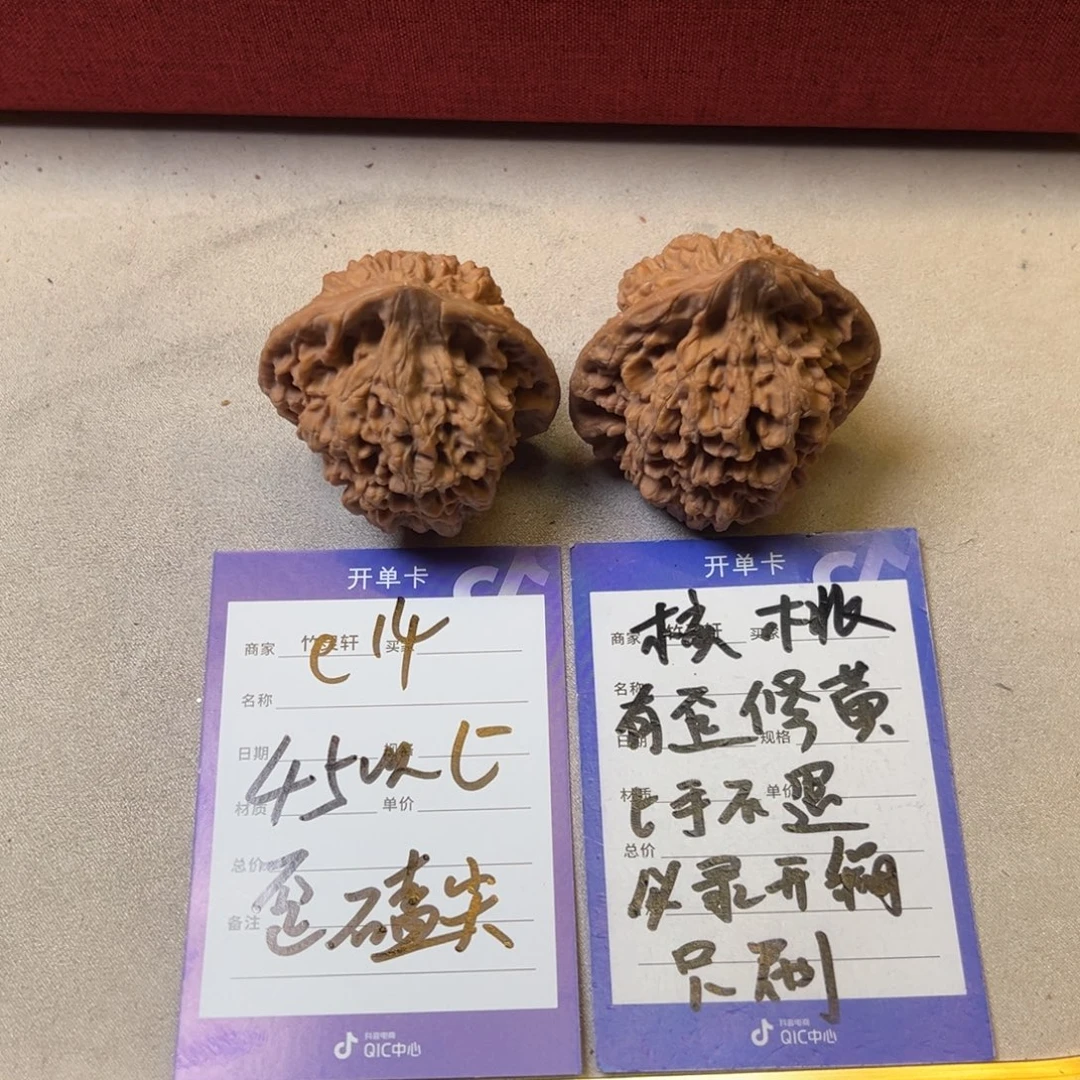 开单卡
商家 竹 轩 买家
e14
名称
日期 规格
45以上
材质 单价
总价
备注
歪磕尖
抖音电商
QIC中心
开单卡
商家 买家
核桃
名称
有歪修黄
日期 规格
上手不退
材质 单价
总价
必录开箱
只刷
抖音电商
QIC中心